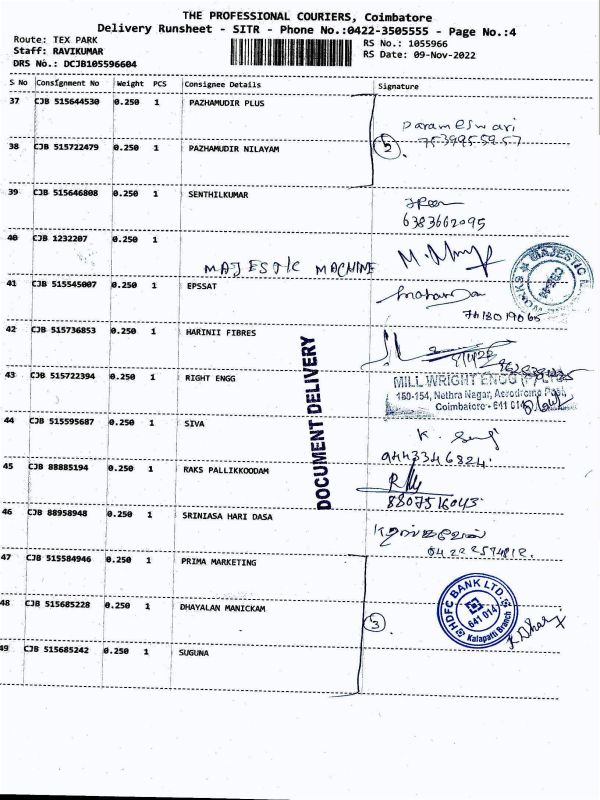 THE PROFESSIONAL COURIERS, Coimbatore
Delivery Runsheet - SITR - Phone No.:0422-3505555 - Page No.:4
Route: TEX PARK
RS No.: 1055966
Staff: RAVIKUMAR
RS Date: 09-Nov-2022
DRS No.: DCJB105596604
S No Consignment No Weight PCS Consignee Details Signature
37 CJB 515644530 0.250 1 PAZHAMUDIR PLUS
Parameswari
7539955957
38 CJB 515722479 0.250 1 PAZHAMUDIR NILAYAM
2
39 CJB 515646808 0.250 1 SENTHILKUMAR
6383662095
40 CJB 1232207 0.250 1
MAJESTIC MACHINE
MAJESTIC
41 CJB 515545007 0.250 1 EPSSAT
42 CJB 515736853 0.250 1 HARINII FIBRES
DOCUMENT DELIVERY
43 CJB 515722394 0.250 1 RIGHT ENGG
MILL WRIGHT ENGG (P) LTD
150-154, Nethra Nagar, Aerodrome Post,
Coimbatore - 641 014
44 CJB 515595687 0.250 1 SIVA
9443346824
45 CJB 88885194 0.250 1 RAKS PALLIKKOODAM
8807516043
46 CJB 88958948 0.250 1 SRINIASA HARI DASA
47 CJB 515584946 0.250 1 PRIMA MARKETING
48 CJB 515685228 0.250 1 DHAYALAN MANICKAM
3
HDFC BANK LTD.
641 014
Kalapatti Branch
49 CJB 515685242 0.250 1 SUGUNA